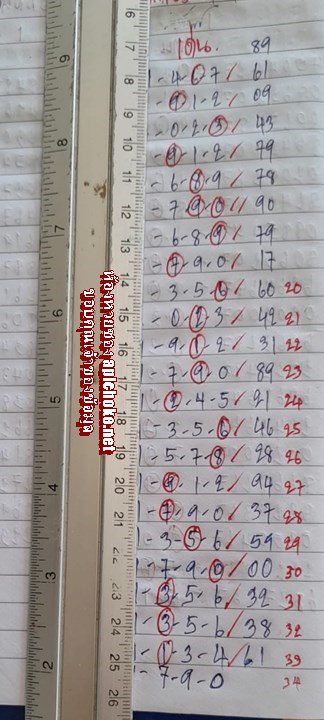 เด่น. 89
1-4-6-7/ 61
-9-1-2/ 09
-0-2-3/ 43
-9-1-2/ 79
-6-8-9/ 78
-7-9-0// 90
-6-8-9/ 79
-7-9-0/ 17
-3-5-6/ 60 20
-0-2-3/ 42 21
-9-1-2/ 31 22
1-7-9-0/ 89 23
1-2-4-5/ 21 24
-3-5-6/ 46 25
-5-7-8/ 28 26
1-9-1-2/ 94 27
1-7-9-0/ 37 28
1-3-5-6/ 59 29
-7-9-0/ 00 30
1-3-5-6/ 32 31
1-3-5-6/ 38 32
1-1-3-4/ 61 33
1-7-9-0 34
6
7
8
9
10
11
12
13
14
15
16
17
18
19
20
21
22
23
24
25
26
9
8
7
6
5
4
3
2
ห้องหวยของ apichoke.net
ขอบคุณเจ้าของข้อมูล